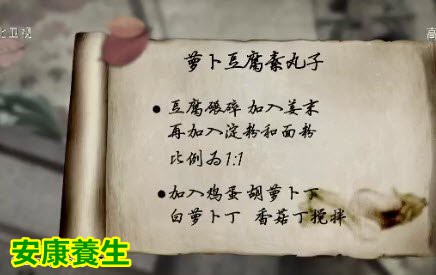 北卫视
高
萝卜豆腐素丸子
豆腐碾碎 加入姜末
再加入淀粉和面粉
比例为1:1
加入鸡蛋 胡萝卜丁
白萝卜丁 香菇丁搅拌
安康養生